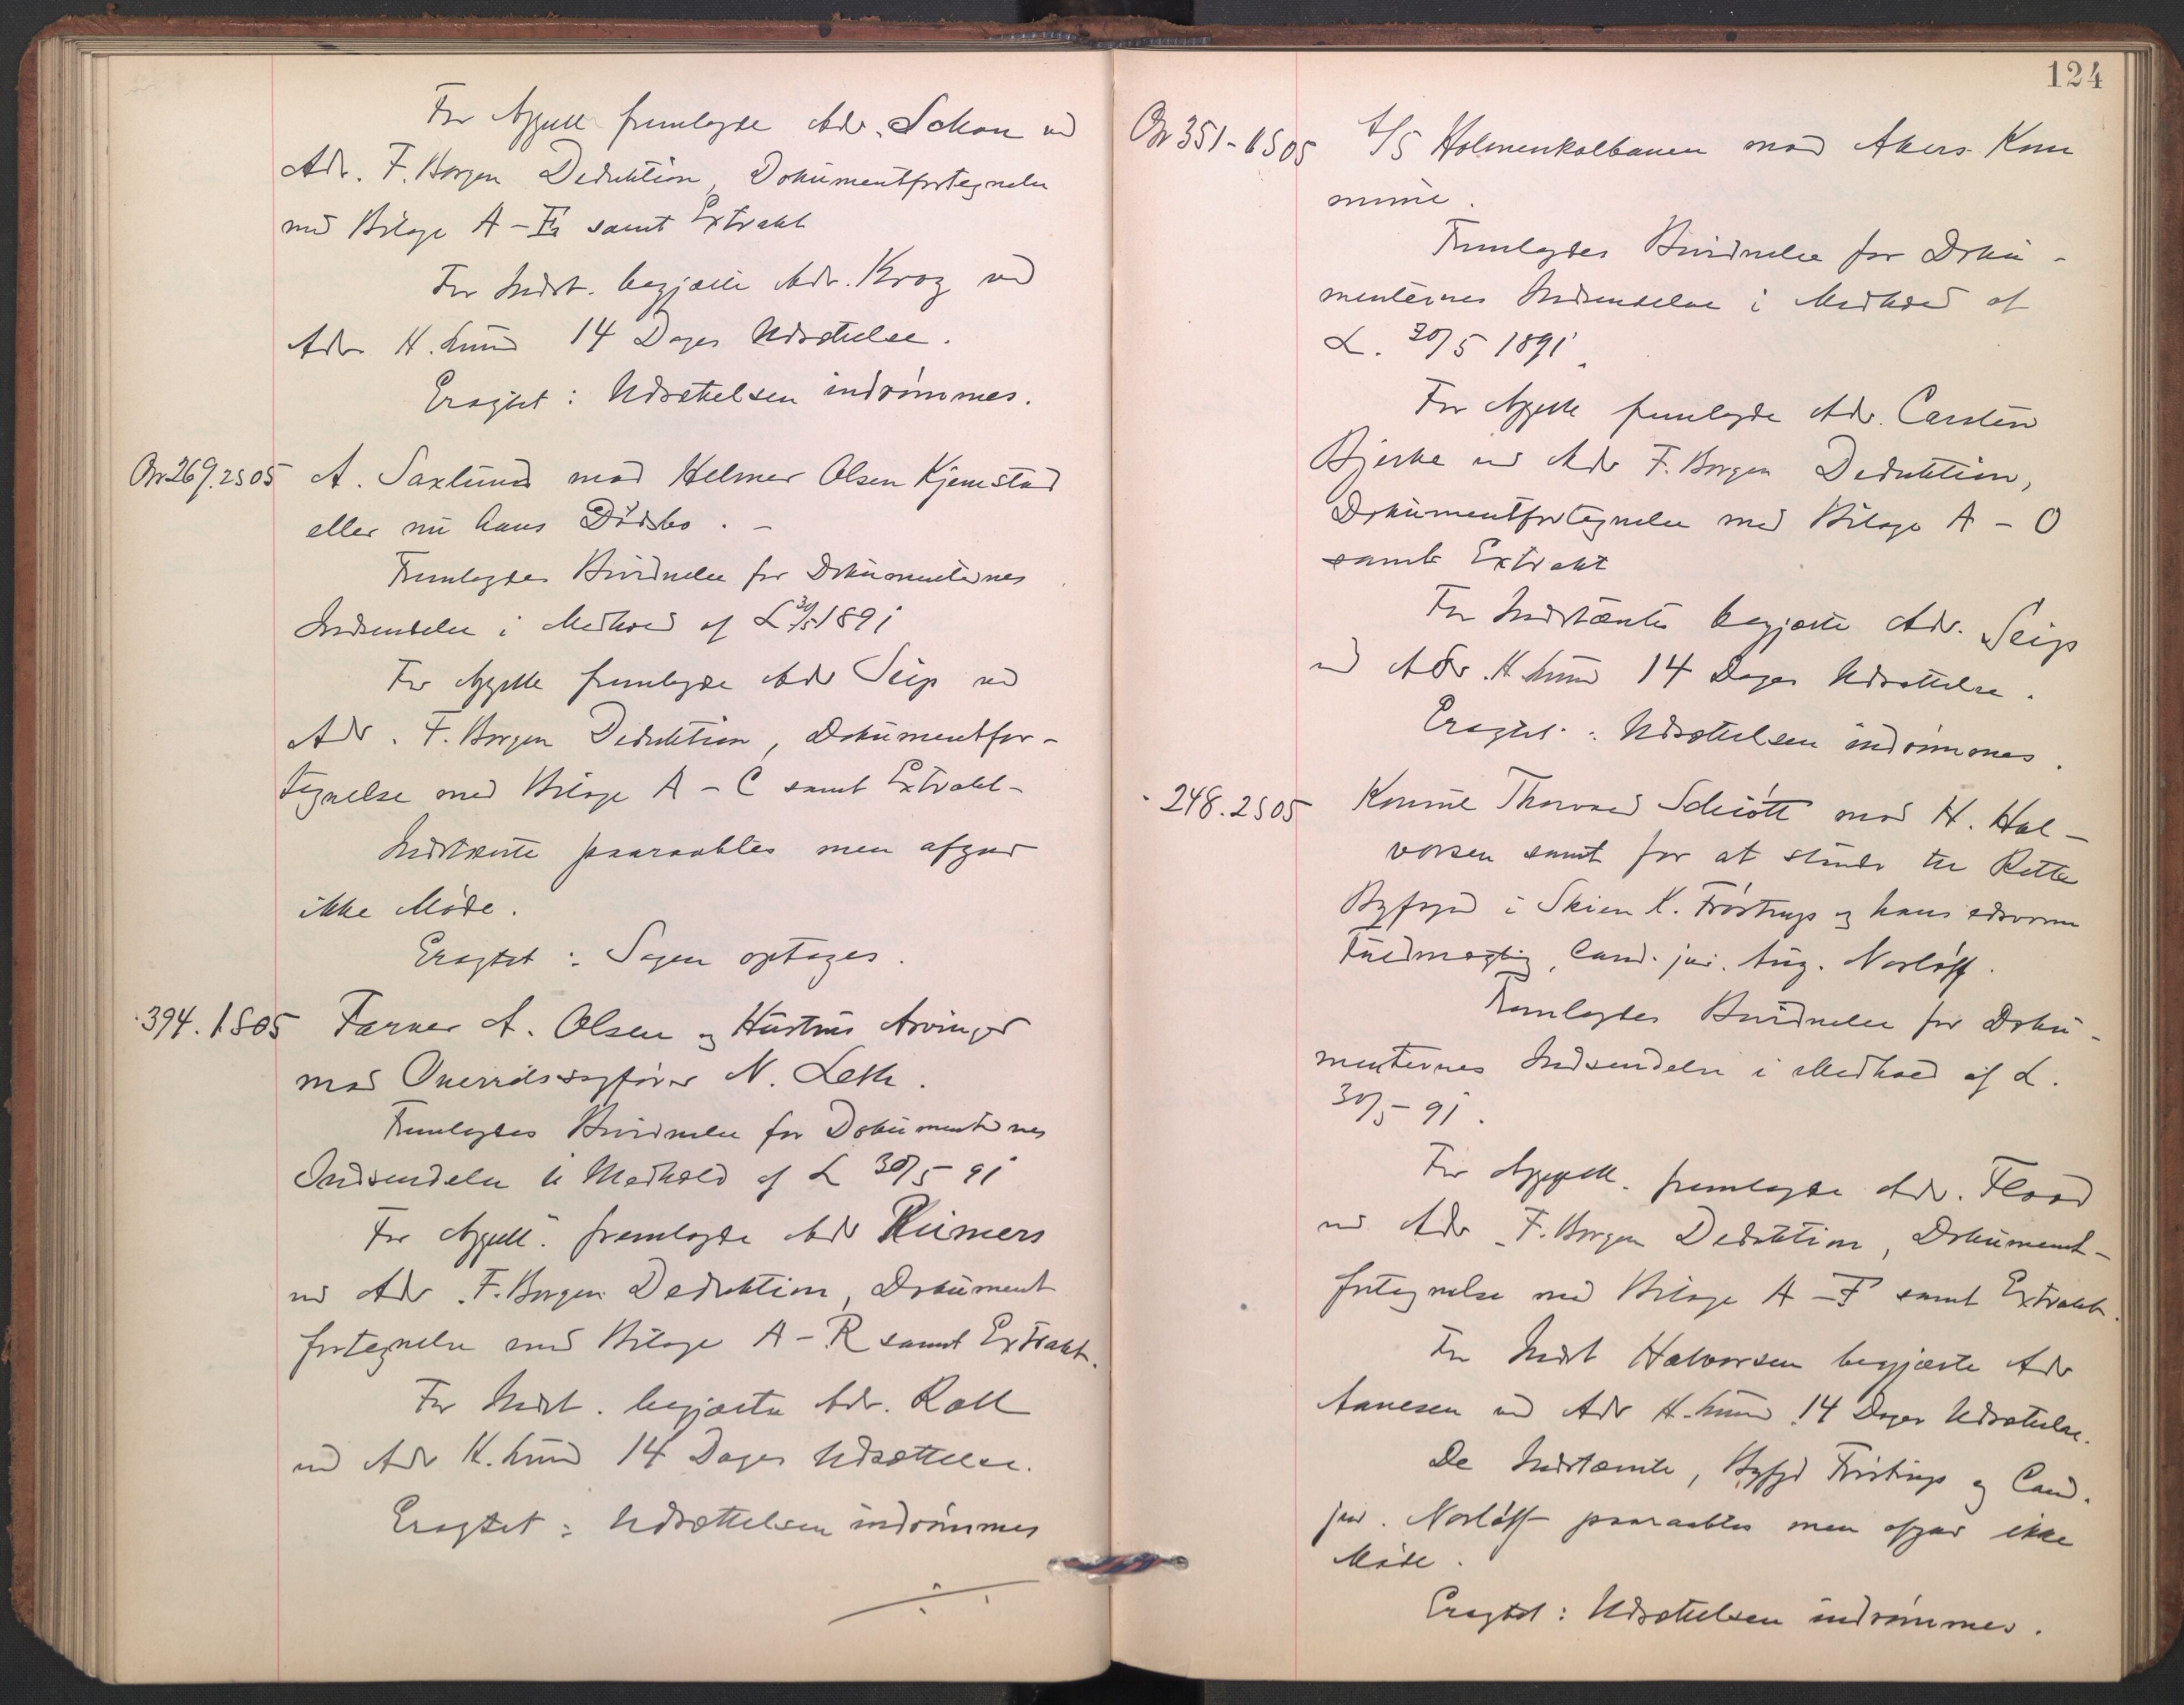 For Appell fremlagde Adv. Schou ved
Adv. F. Borgen Deduktion, Dokumentfortegnelse
med Bilage A-E samt Extrakt
For Indst. begjærte Adv. Krog ved
Adv H. Lund 14 Dages Udsættelse.
Eragtet: Udsættelsen indrømmes.
No 269.2S05 A. Saxlund mod Helmer Olsen Kjemstad
eller nu hans Dödsbo. -
Fremlagdes Bevidnelse for Dokumenternes
Indsendelse i Medhold af L 30/5 1891
For Appell fremlagde Adv Seip ved
Adv. F. Borgen Deduktion, Dokumentfor-
tegnelse med Bilage A - C samt Extrakt-
Indstævnte paaraabtes men afgav
ikke Möde.
Eragtet: Sagen optages.
" 394.1S05 Farver A. Olsen og Hustrus Arvinger
mod Overretssagfører N. Leth.
Fremlagdes Bevidnelse for Dokumenternes
Indsendelse i Medhold af L 30/5-91
For Appell. fremlagde Adv Reimers
ved Adv. F. Borgen Deduktion, Dokument
fortegnelse med Bilage A-R samt Extrakt.
For Indst. begjærte Adv. Roll
ved Adv H. Lund 14 Dages Udsættelse.
Eragtet: Udsættelsen indrömmes
124
No 351-1S05 A/S Holmenkolbanen mod Akers Kom
mune.
Fremlagdes Bevidnelse for Doku-
menternes Indsendelse i Medhold af
L. 30/5 1891.
For Appell fremlagde Adv. Carsten
Bjerke ved Adv F. Borgen Deduktion,
Dokumentfortegnelse med Bilage A - O
samt Extrakt
For Indstævnte begjærte Adv. Seip
ved Adv. H. Lund 14 Dages Udsættelse.
Eragtet: Udsættelsen indrömmes.
" 248.2S05 Konsul Thorvald Schiött mod H. Hal-
vorsen samt for at stande til Rette
Byfogd i Skien K. Fröstrup og hans edsvorne
Fuldmægtig, Cand. jur. Aug. Norløff.
Fremlagdes Bevidnelse for Doku-
menternes Indsendelse i Medhold af L.
30/5-91.
For Appell. fremlagde Adv. Flood
ved Adv F. Borgen Deduktion, Dokument-
fortegnelse med Bilage A-F samt Extrakt.
For Indst Halvorsen begjærte Adv
Aanesen ved Adv H. Lund 14 Dages Udsættelse.
De Indstævnte, Byfgd Fröstrup og Cand.
jur. Norløff paaraabtes men afgav ikke
Möde.
Eragtet: Udsættelsen indrömmes.